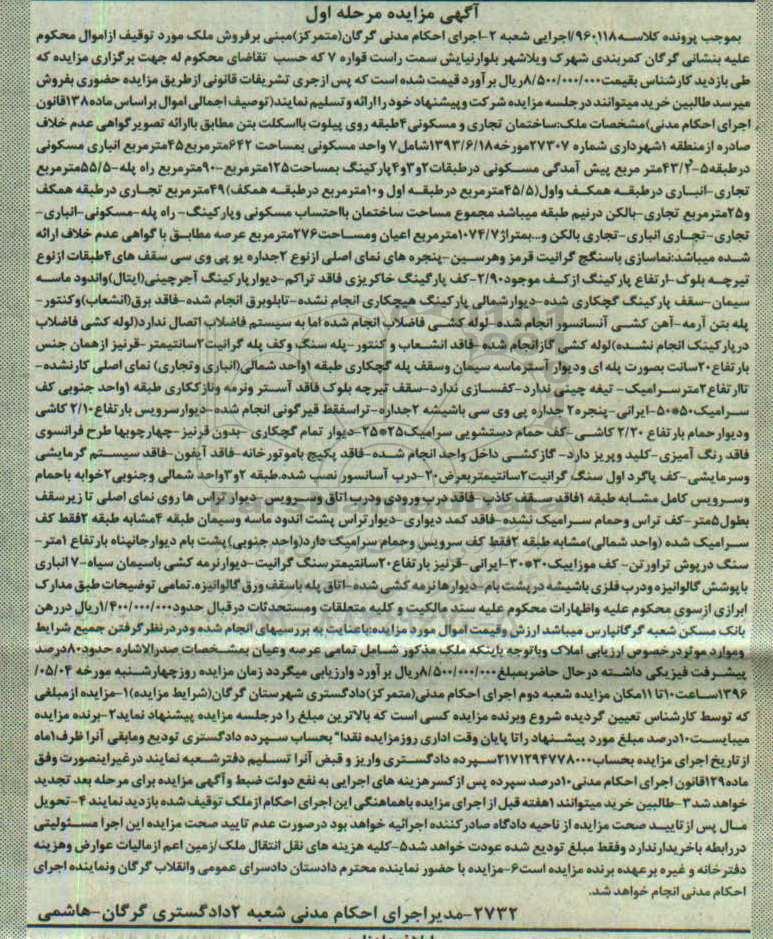 آگهی مزایده مرحله اول
بموجب پرونده کلاسه ۹۶۰۱۱۸/اجرایی شعبه ۲-اجرای احکام مدنی گرگان(متمرکز)مبنی برفروش ملک مورد توقیف ازاموال محکوم
علیه بنشانی گرگان کمربندی شهرک ویلاشهر بلوارنیایش سمت راست قواره ۷ که حسب تقاضای محکوم له جهت برگزاری مزایده که
طی بازدید کارشناس بقیمت ۸/۵۰۰/۰۰۰/۰۰۰ریال برآورد قیمت شده است که پس ازجری تشریفات قانونی ازطریق مزایده حضوری بفروش
میرسد طالبین خرید میتوانند درجلسه مزایده شرکت وپیشنهاد خود را ارائه و تسلیم نمایند(توصیف اجمالی اموال براساس ماده ۱۳۸قانون
اجرای احکام مدنی)مشخصات ملک:ساختمان تجاری و مسکونی ۴طبقه روی پیلوت بااسکلت بتن مطابق باارائه تصویرگواهی عدم خلاف
صادره ازمنطقه ۱شهرداری شماره ۲۷۳۰۷مورخه ۱۳۹۳/۶/۱۸شامل ۷ واحد مسکونی بمساحت ۶۴۲مترمربع ۴۵مترمربع انباری مسکونی
درطبقه ۵-۴۳/۲متر مربع پیش آمدگی مسکونی درطبقات ۲و۳و۴پارکینگ بمساحت ۱۲۵مترمربع-۹۰مترمربع راه پله-۵۵/۵مترمربع
تجاری-انباری درطبقه همکف واول(۴۵/۵مترمربع درطبقه اول و۱۰مترمربع درطبقه همکف)۴۹مترمربع تجاری درطبقه همکف
و۲۵مترمربع تجاری-بالکن درنیم طبقه میباشد مجموع مساحت ساختمان بااحتساب مسکونی وپارکینگ-راه پله-مسکونی-انباری-
تجاری-تجاری انباری-تجاری بالکن و...بمتراژ ۱۰۷۴/۷مترمربع اعیان ومساحت ۲۷۶مترمربع عرصه مطابق با گواهی عدم خلاف ارائه
شده میباشد:نماسازی باسنگچ گرانیت قرمز وهرسین-پنجره های نمای اصلی ازنوع ۲جداره یو پی وی سی سقف های ۴طبقات ازنوع
تیرچه بلوک-ارتفاع پارکینگ ازکف موجود ۲/۹۰-کف پارگینگ خاکریزی فاقد تراکم-دیوارپارکینگ آجرچینی(ایتال)واندود ماسه
سیمان-سقف پارکینگ گچکاری شده-دیوارشمالی پارکینگ هیچکاری انجام نشده-تابلوبرق انجام شده-فاقد برق(انشعاب)وکنتور-
پله بتن آرمه-آهن کشی آنسانسور انجام شده-لوله کشی فاضلاب انجام شده اما به سیستم فاضلاب اتصال ندارد(لوله کشی فاضلاب
درپارکینک انجام نشده)لوله کشی گازانجام شده-فاقد انشعاب و کنتور-پله سنگ وکف پله گرانیت ۲سانتیمتر-قرنیز ازهمان جنس
بارتفاع ۲۰سانت بصورت پله ای ودیوار آسترماسه سیمان وسقف پله گچکاری طبقه ۱واحد شمالی(انباری وتجاری) نمای اصلی کارنشده-
تاارتفاع ۲مترسرامیک- تیغه چینی ندارد-کفسازی ندارد-سقف تیرچه بلوک فاقد آستر ونرمه ونازکاری طبقه ۱واحد جنوبی کف
سرامیک ۵۰*۵۰-ایرانی-پنجره ۲ جداره پی وی سی باشیشه ۲جداره-تراسفقط قیرگونی انجام شده-دیوارسرویس بارتفاع ۲/۱۰ کاشی
ودیوارحمام بارتفاع ۲/۲۰ کاشی-کف حمام دستشویی سرامیک ۲۵*۲۵-دیوار تمام گچکاری -بدون قرنیز-چهارچوبها طرح فرانسوی
فاقد رنگ آمیزی-کلید وپریز دارد- گازکشی داخل واحد انجام شده-فاقد پکیج باموتورخانه-فاقد آیفون-فاقد سیستم گرمایشی
وسرمایشی-کف پاگرد اول سنگ گرانیت ۲سانتیمتربعرض ۲۰-درب آسانسور نصب شده.طبقه ۲و۳واحد شمالی وجنوبی ۲خوابه باحمام
وسرویس کامل مشابه طبقه ۱فاقد سقف کاذب-فاقد درب ورودی ودرب اتاق وسرویس-دیوار تراس ها روی نمای اصلی تا زیرسقف
بطول ۵متر-کف تراس وحمام سرامیک نشده-فاقد کمد دیواری-دیوارتراس پشت اندود ماسه وسیمان طبقه ۴مشابه طبقه ۲فقط کف
سرامیک شده (واحد شمالی)مشابه طبقه ۲فقط کف سرویس وحمام سرامیک دارد(واحد جنوبی)پشت بام دیوارجانپناه بارتفاع ۱متر-
سنگ درپوش تراورتن- کف موزاییک ۳۰*۳۰-ایرانی-قرنیز بارتفاع ۲۰سانتیمترسنگ گرانیت-دیوارنرمه کشی باسیمان سیاه-۷ انباری
باپوشش گالوانیزه ودرب فلزی باشیشه درپشت بام-دیوارها نرمه کشی شده-اتاق پله باسقف ورق گالوانیزه.تمامی توضیحات طبق مدارک
ابرازی ازسوی محکوم علیه واظهارات محکوم علیه سند مالکیت و کلیه متعلقات ومستحدثات درقبال حدود ۱/۴۰۰/۰۰۰/۰۰۰ریال دررهن
بانک مسکن شعبه گرگانپارس میباشد ارزش وقیمت اموال مورد مزایده:باعنایت به بررسیهای انجام شده ودرنظرگرفتن جمیع شرایط
وموارد موثردرخصوص ارزیابی املاک وباتوجه باینکه ملک مذکور شامل تمامی عرصه وعیان بمشخصات صدرالاشاره حدود ۸۰درصد
پیشرفت فیزیکی داشته درحال حاضربمبلغ ۸/۵۰۰/۰۰۰/۰۰۰ریال برآورد وارزیابی میگردد زمان مزایده روزچهارشنبه مورخه ۰۵/۰۴/
۱۳۹۶ساعت ۱۰تا ۱۱مکان مزایده شعبه دوم اجرای احکام مدنی(متمرکز)دادگستری شهرستان گرگان(شرایط مزایده)۱-مزایده ازمبلغی
که توسط کارشناس تعیین گردیده شروع وبرنده مزایده کسی است که بالاترین مبلغ را درجلسه مزایده پیشنهاد نماید ۲-برنده مزایده
میبایست ۱۰درصد مبلغ مورد پیشنهاد راتا پایان وقت اداری روزمزایده نقدا" بحساب سپرده دادگستری تودیع ومابقی آنرا ظرف ۱ماه
ازتاریخ اجرای مزایده بحساب ۲۱۷۱۲۹۴۷۷۸۰۰۰سپرده دادگستری واریز و قبض آنرا تسلیم دفترشعبه نمایند درغیراینصورت وفق
ماده ۱۲۹قانون اجرای احکام مدنی ۱۰درصد سپرده پس ازکسرهزینه های اجرایی به نفع دولت ضبط وآگهی مزایده برای مرحله بعد تجدید
خواهد شد ۳-طالبین خرید میتوانند ۱هفته قبل ازاجرای مزایده باهماهنگی این اجرای احکام ازملک توقیف شده بازدید نمایند ۴-تحویل
مال پس ازتایید صحت مزایده از ناحیه دادگاه صادرکننده اجرائیه خواهد بود درصورت عدم تایید صحت مزایده این اجرا مسئولیتی
دررابطه باخریدارندارد وفقط مبلغ تودیع شده عودت خواهد شد ۵-کلیه هزینه های نقل انتقال ملک/زمین اعم ازمالیات عوارض وهزینه
دفترخانه و غیره برعهده برنده مزایده است ۶-مزایده با حضور نماینده محترم دادستان دادسرای عمومی وانقلاب گرگان ونماینده اجرای
احکام مدنی انجام خواهد شد.
۲۷۳۲-مدیراجرای احکام مدنی شعبه ۲دادگستری گرگان-هاشمی